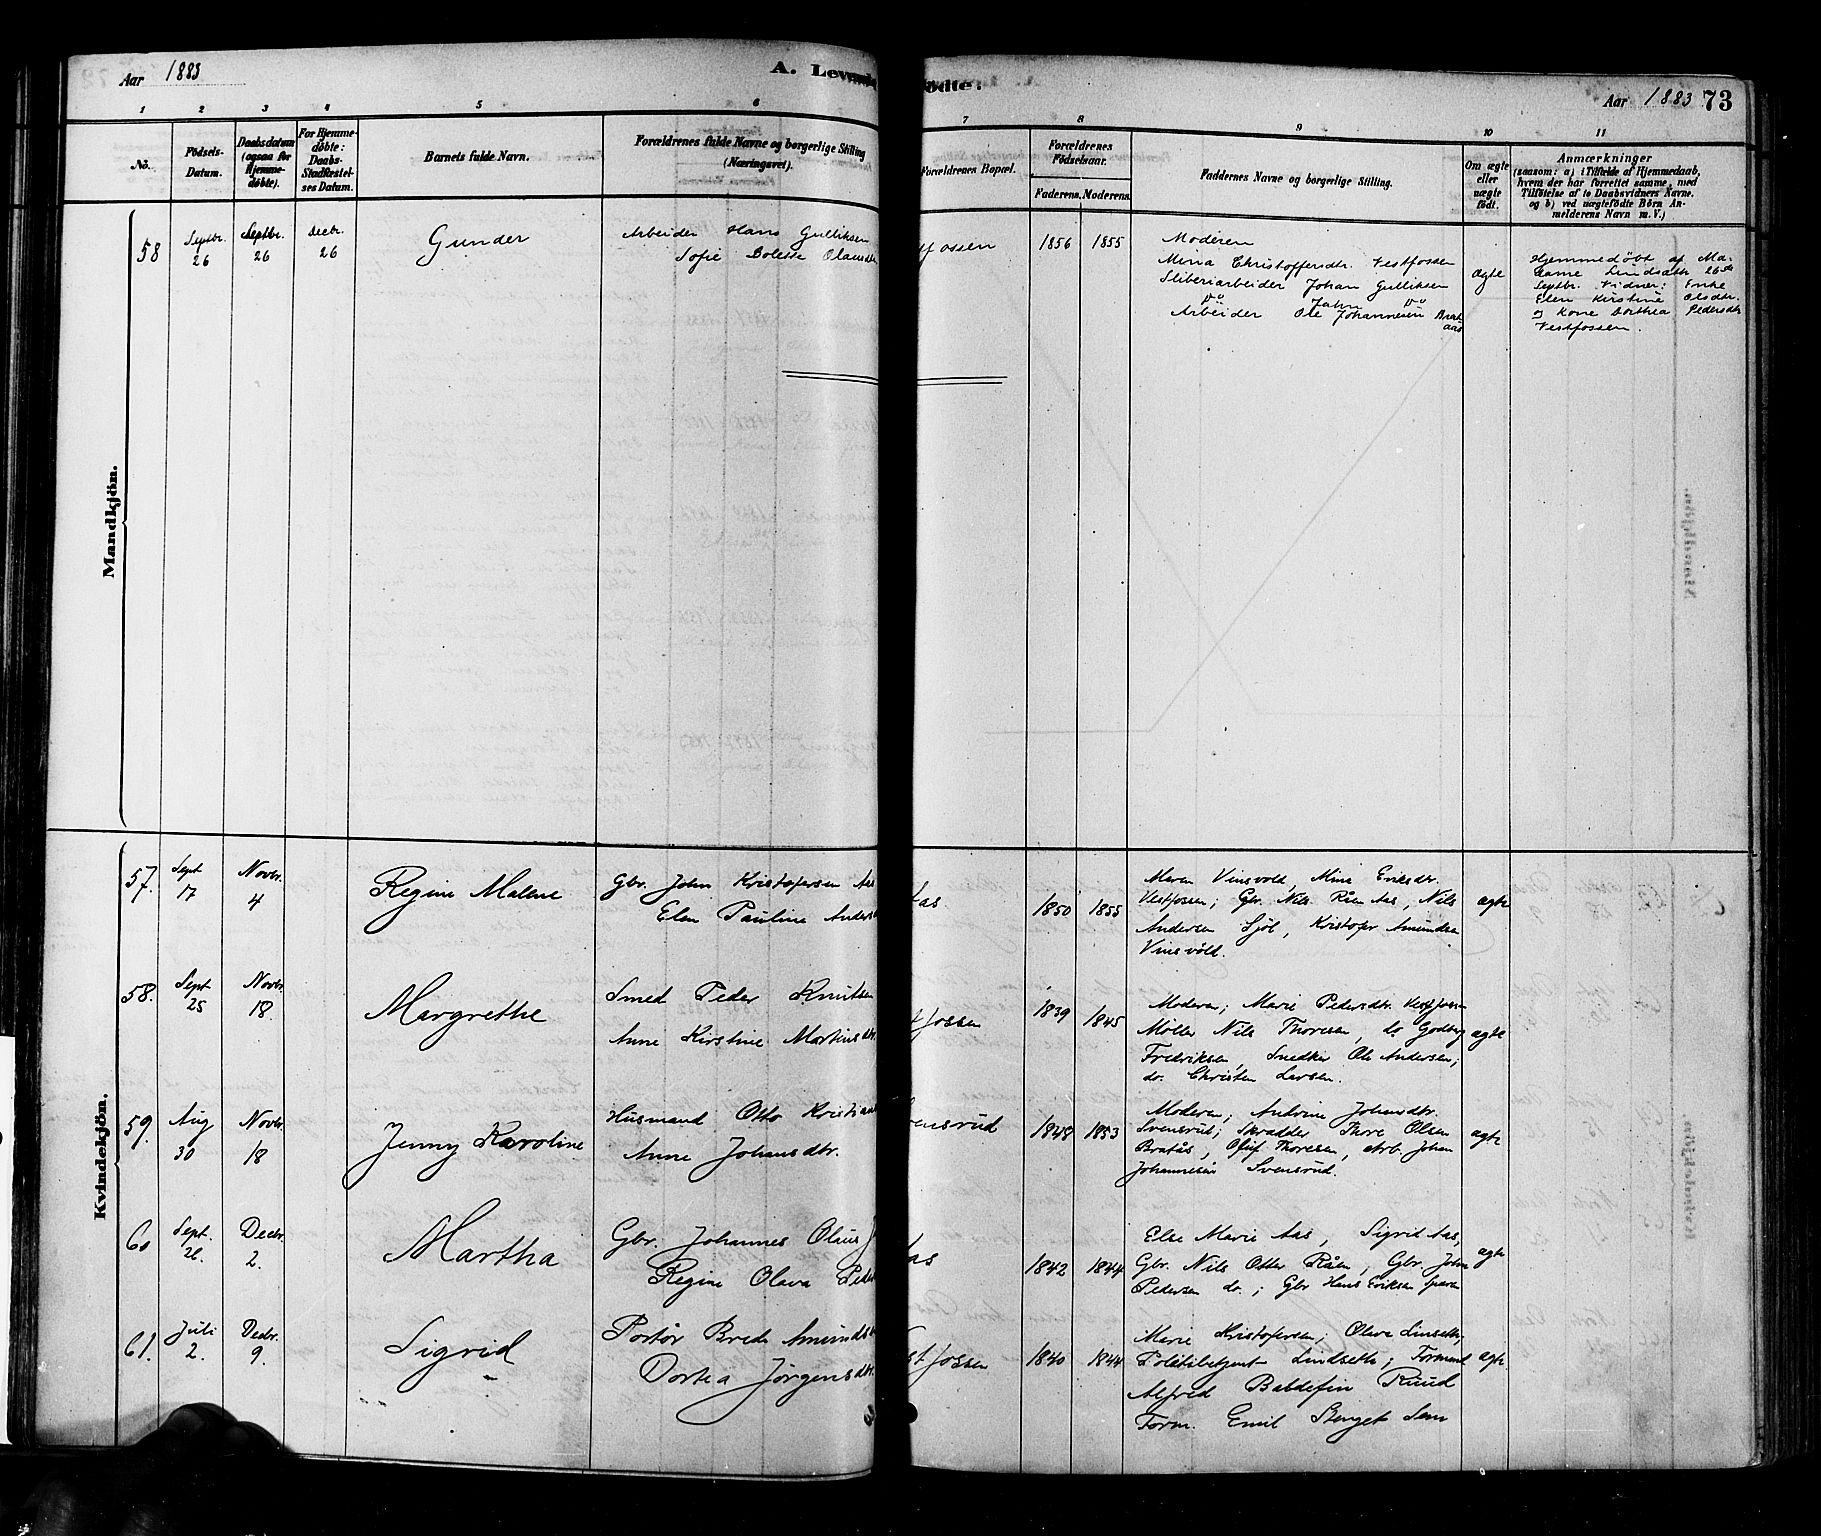 Aar 1883
A. Levende
fødte.
Aar 1883 73
1 2 3 4 5 6 7 8 9 10 11
No.
Fødsels-
Datum.
Daabsdatum
(ogsaa for
Hjemme-
døbte).
For Hjemme-
døbte:
Daabs-
Stadfæstel-
ses Datum.
Barnets fulde Navn.
Forældrenes fulde Navne og borgerlige Stilling
(Næringsvei).
Forældrenes Bopæl.
Forældrenes
Fødselsaar.
Faderens. Moderens.
Faddernes Navne og borgerlige Stilling.
Om ægte
eller
uægte
født.
Anmærkninger
(saasom: a) i Tilfælde af Hjemmedaab,
hvem der har forrettet samme, med
Tilføielse af to Daabsvidners Navne.
og b) ved uægtefødte Børn An-
melderens Navn m. V.)
Mandkjön.
58
Septbr.
26
Septbr.
26
Decbr.
26
Gunder
Arbeider Hans Gulliksen
Sofie Bolette Olausdtr
fossen
1856 1855
Moderen
Mina Christoffersdtr. Vestfossen
Sliberiarbeider Johan Gulliksen
do Jahn do
Arbeider Ole Johannesen Brat-
aas
ægte
Hjemmedøbt af Ma-
dame Lindsæth 26de
Septbr. Vidner: Enke
Elen Kirstine Olsdtr.
og Kone Dorthea Pedersdtr
Vestfossen.
Kvindekjön.
57.
Sept
17
Novbr.
4
Regine Malene
Gbr. John Kristofersen Aas
Elen Pauline Anders
Aas
1850 1855
Maren Vinsvold, Mina Eriksdtr.
Vestfossen; Gbr. Nils Råen Aas, Nils
Andersen Sjöl, Kristofer Amundsen
Vinsvold.
ægte
58.
Sept
25
Novbr.
18.
Margrethe
Smed Peder Knutsen
Anne Kirstine Martinsdtr.
stfossen
1839 1845
Moderen; Marie Pedersdtr. Vestfossen
Møller Nils Thoresen, do Godberg
Fredriksen, Snedker Ole Andersen;
do. Christen Larsen.
ægte
59.
Aug
30
Novbr.
18
Jenny Karoline
Husmand Otto Kristian
Anne Johansdtr.
vensrud
1848 1853
Moderen; Andrine Johansdtr.
Svensrud; Skradder Thore Olsen
Bratås, Oluf Thoresen, Arb. Johan
Johannesen Svensrud.
ægte
60
Sept.
26.
Decbr.
2.
Martha
Gbr. Johannes Olaus J
Regine Olava Peder
Aas
1842 1844
Else Marie Aas, Sigrid Aas,
Gbr. Nils Otter Råen, Gbr. John
Pedersen do.; Gbr Hans Eriksen
ægte
61.
Juli
2.
Decbr.
9.
Sigrid
Portör Brede Amunds
Dortea Jörgensdtr.
stfossen
1840 1844
Marie Kristofersen; Olava Linseth,
Politibetjent Lindseth; Formand
Alfred Ruud
Form. Emil Sem
ægte